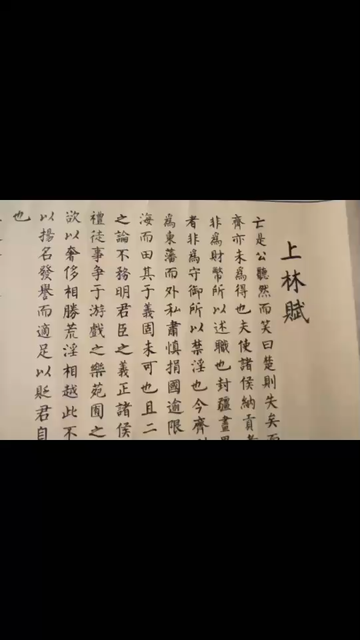 上林賦
亡是公听然而笑曰楚則失矣而
齊亦未為得也夫使諸侯納貢
非為財幣所以述職也封疆畫
者非為守御所以禁淫也今齊
為東藩而外私肅慎捐國逾限
海而田其于義固未可也且二
之論不務明君臣之義正諸侯
禮徒事爭于游戲之樂苑囿之
欲以奢侈相勝荒淫相越此不
以揚名發譽而適足以貶君自
也